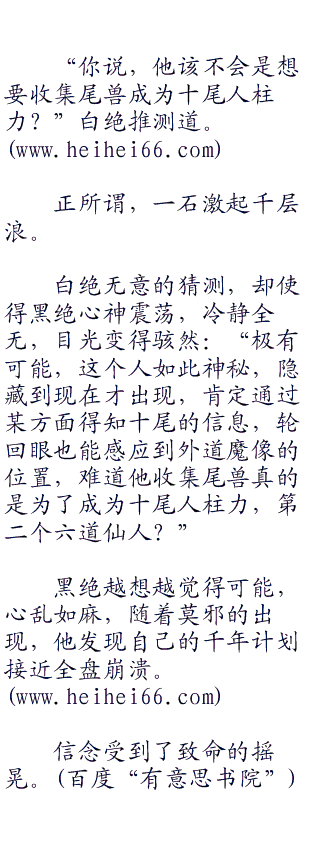 “你说，他该不会是想
要收集尾兽成为十尾人柱
力？”白绝推测道。
(www.heihei66.com)
正所谓，一石激起千层
浪。
白绝无意的猜测，却使
得黑绝心神震荡，冷静全
无，目光变得骇然：“极有
可能，这个人如此神秘，隐
藏到现在才出现，肯定通过
某方面得知十尾的信息，轮
回眼也能感应到外道魔像的
位置，难道他收集尾兽真的
是为了成为十尾人柱力，第
二个六道仙人？”
黑绝越想越觉得可能，
心乱如麻，随着莫邪的出
现，他发现自己的千年计划
接近全盘崩溃。
(www.heihei66.com)
信念受到了致命的摇
晃。(百度“有意思书院”)